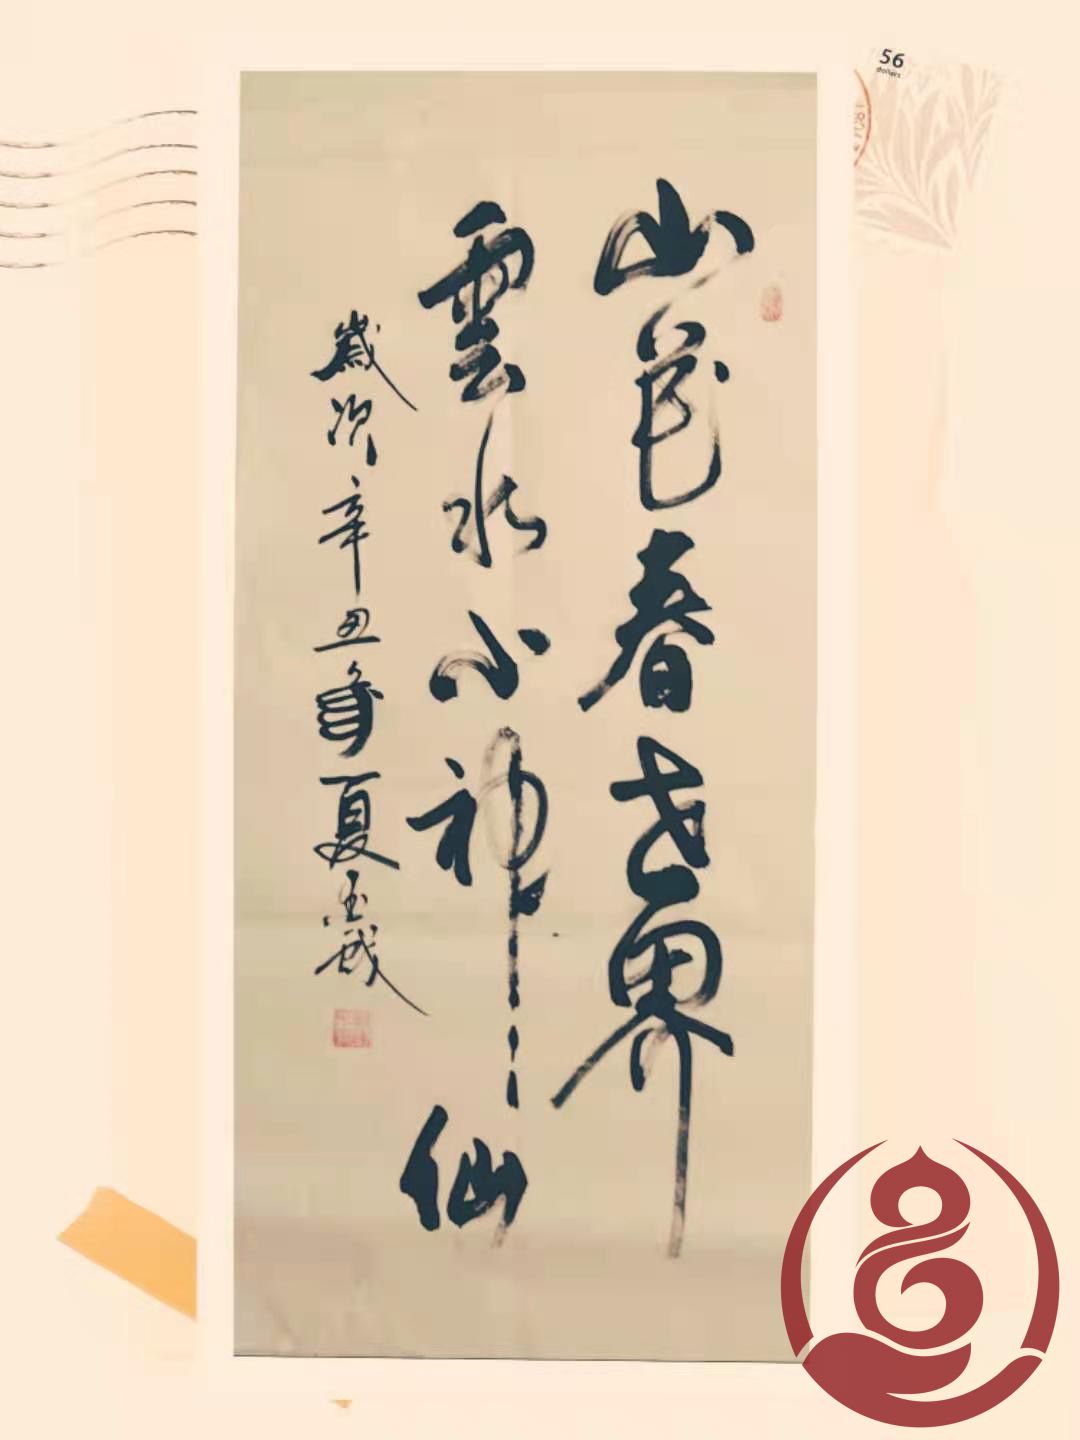 山花春世界
雲水小神仙
歲次辛丑年夏玉成
56
dollars